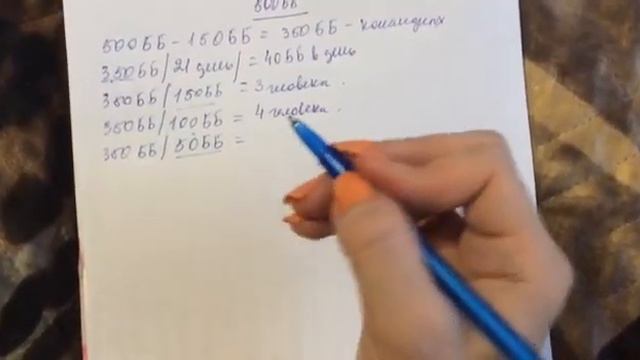 500ББ
500ББ - 150ББ = 350ББ - командира
350ББ / 21 день / = 40ББ в день
350ББ / 150ББ = 3 человека.
350ББ / 100ББ = 4 человека.
350ББ / 50ББ =